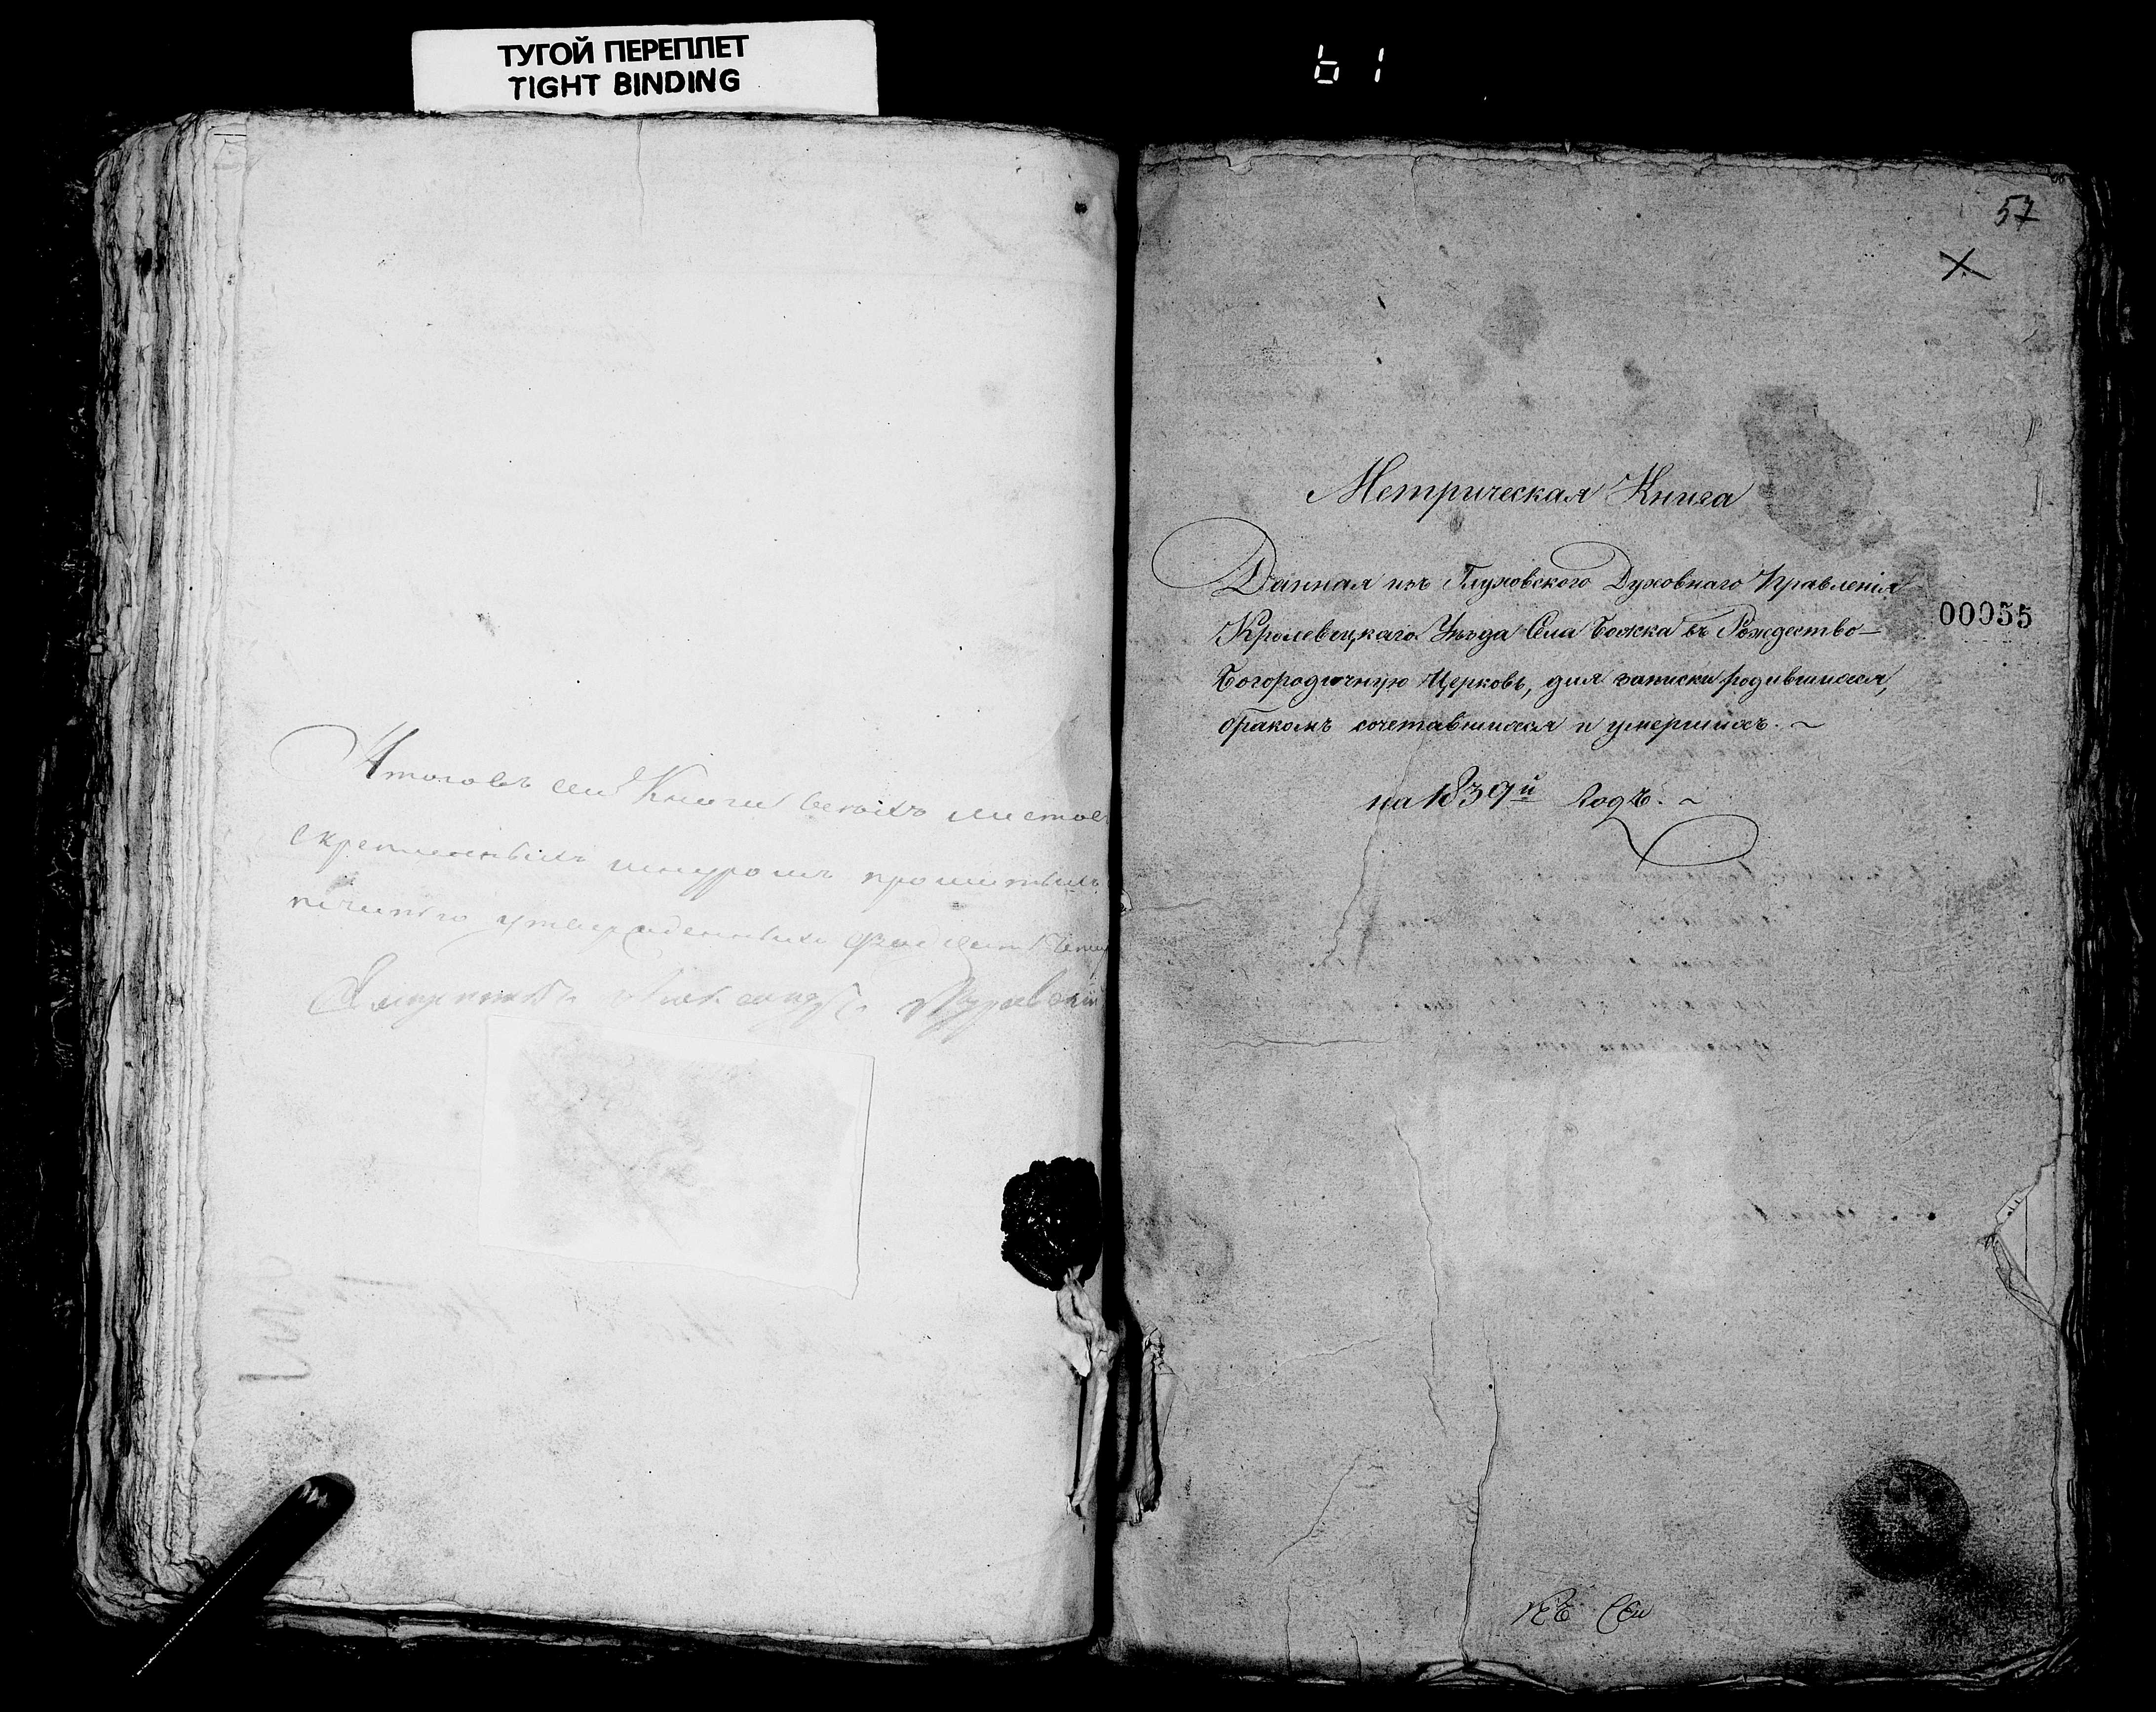 ТУГОЙ ПЕРЕПЛЕТ
TIGHT BINDING
61
Итого въ сей Книги всехъ листовъ
скрепленныхъ шнуромъ прошитыхъ
печатью утвержденныхъ
Александръ
57
Метрическая Книга
Данная изъ Глуховского Духовнаго Правленія
00055
Кролевецкаго Уезда Села Божка въ Рождество-
Богородичную Церковь, для записки родившихся,
бракомъ сочетавшихся и умершихъ. ~
на 1839й Годъ. ~